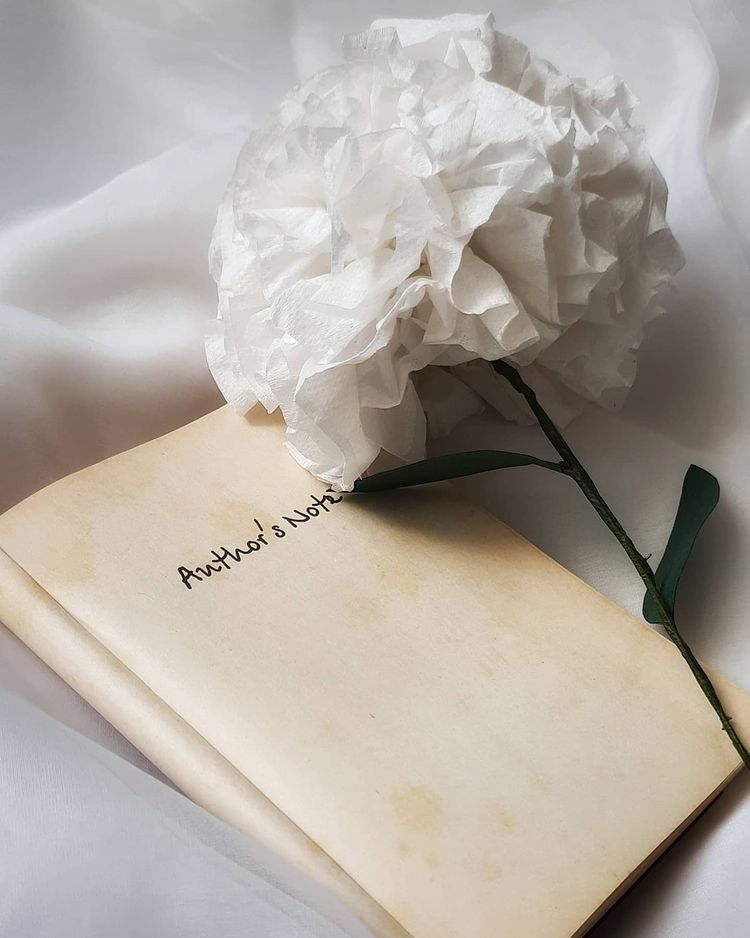 Author's Note